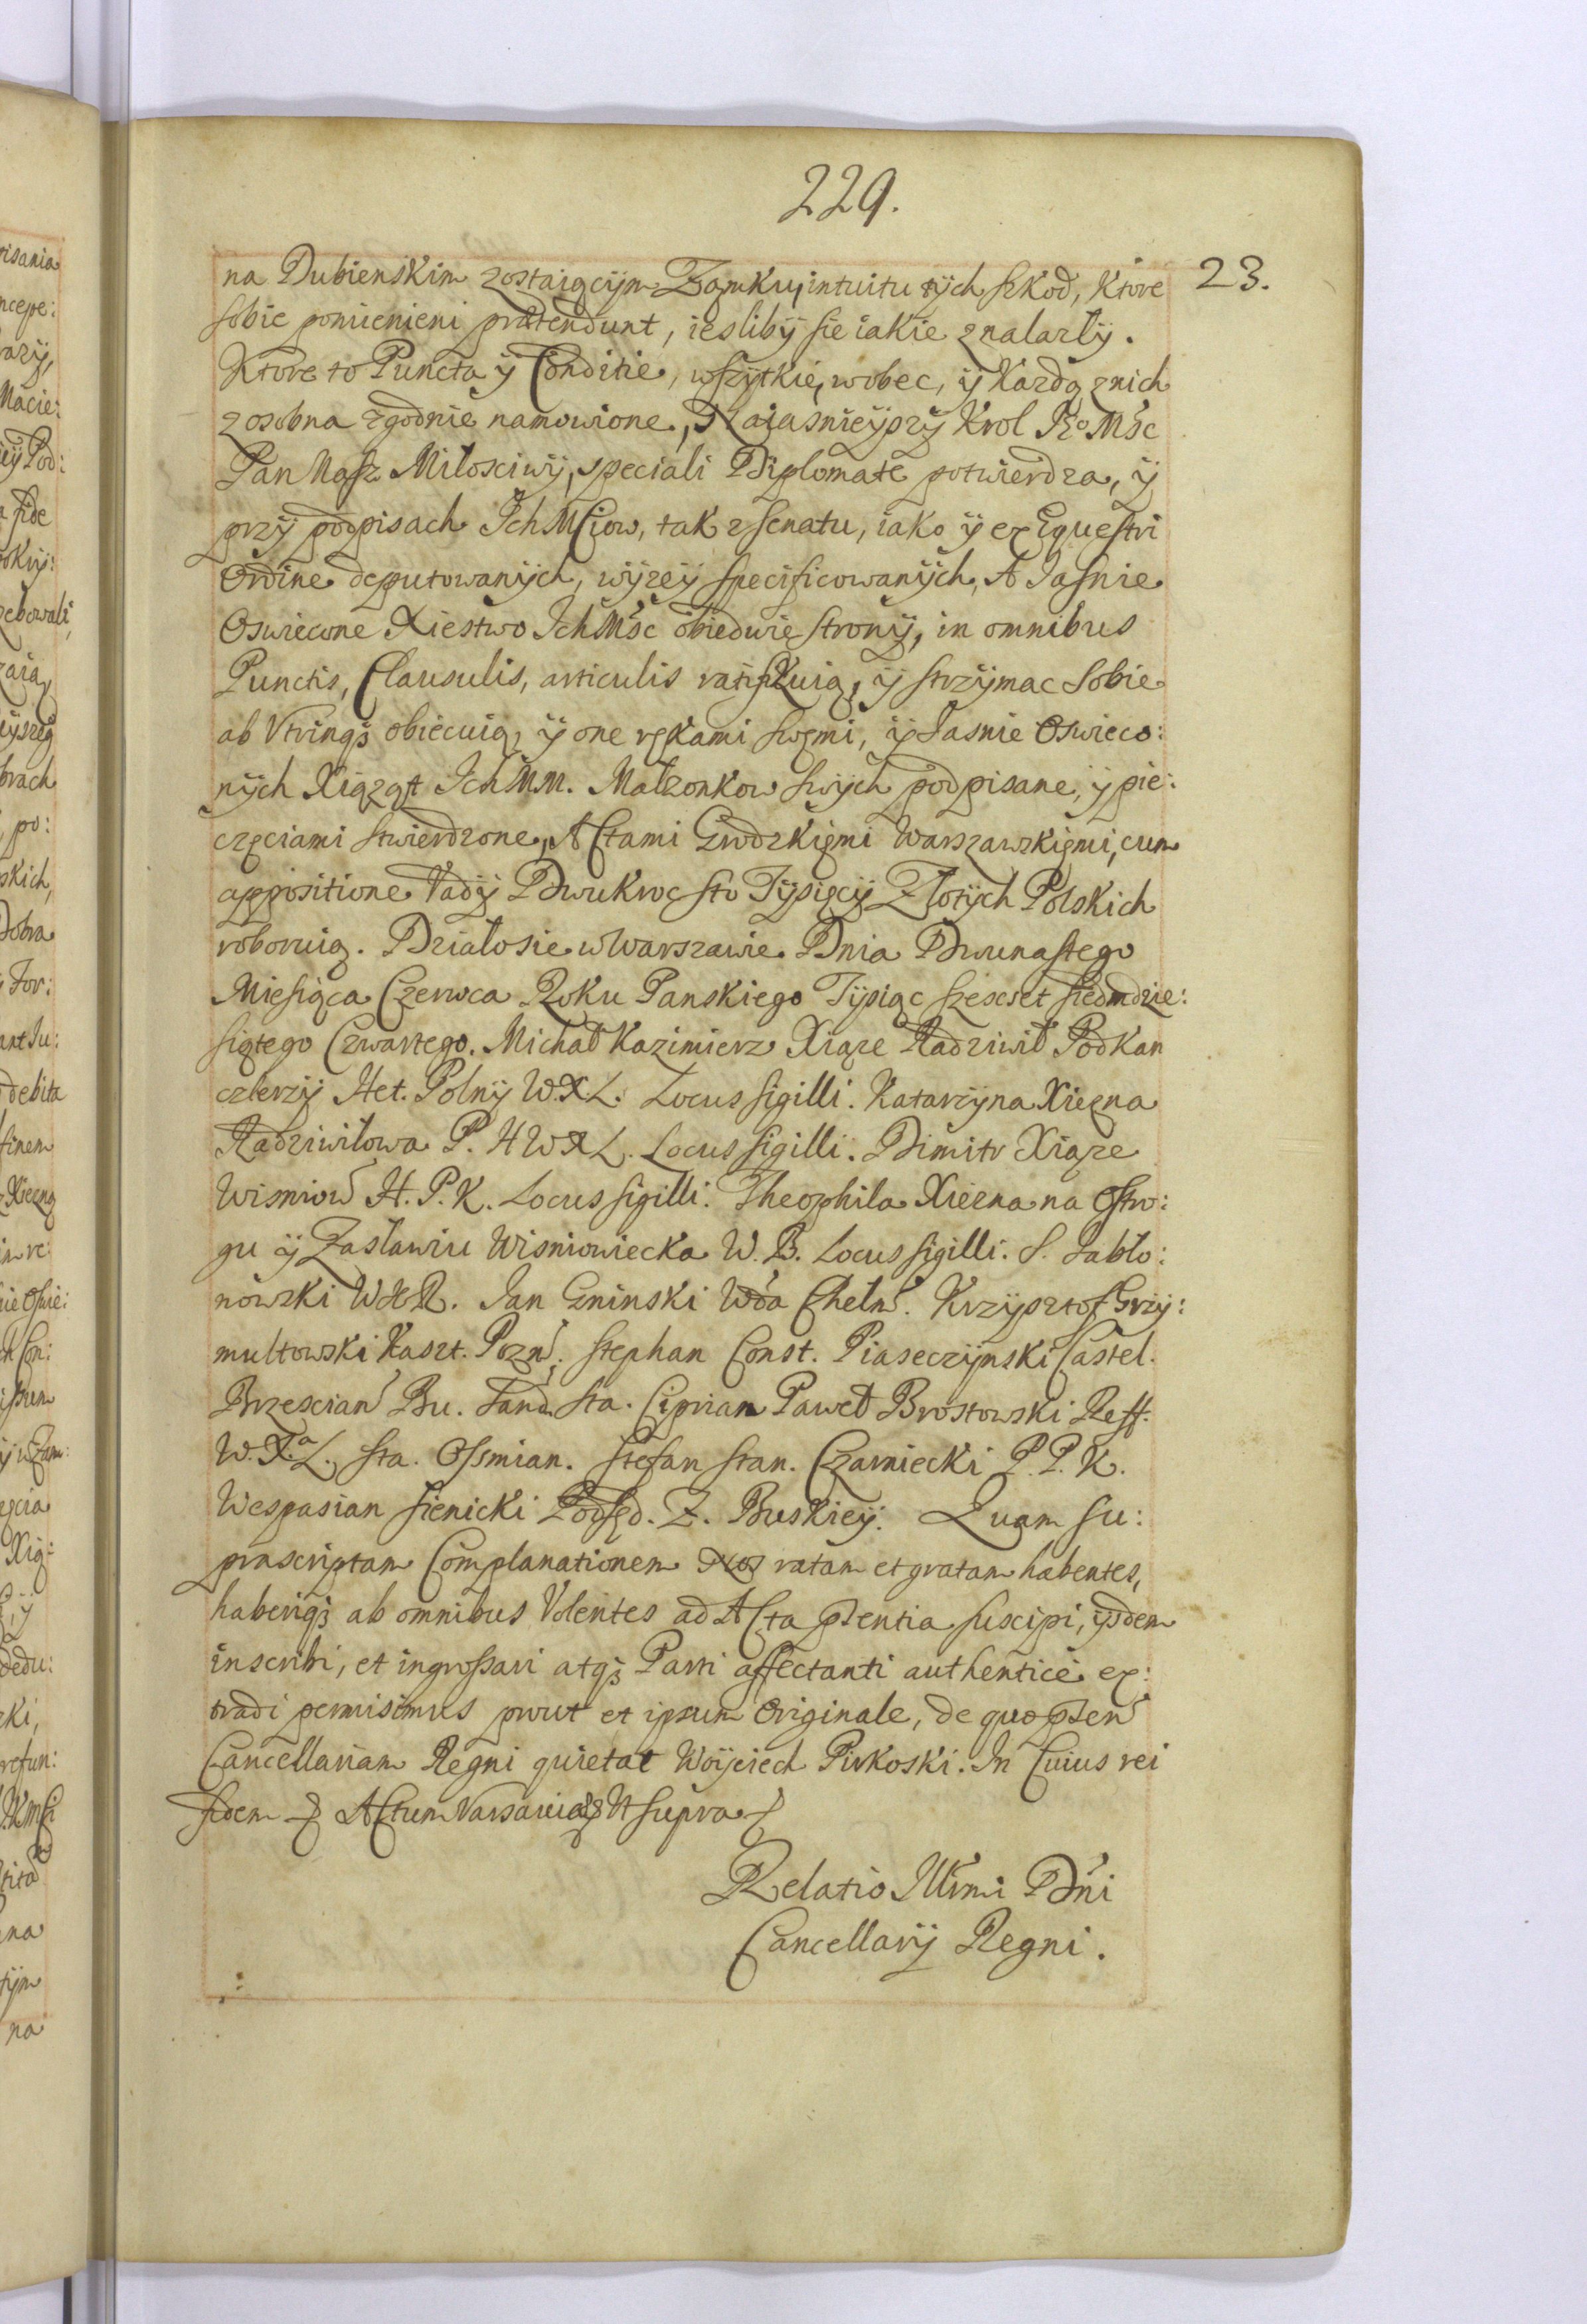 229.
23.
na Dubienskim zostaiącÿm Zamku, intuitu tÿch szkod, Ktore
sobie pomienieni prætendunt, iesliby sie iakie znalazłÿ.
Ktore to Puncta ÿ Conditie, wszÿtkie, wobec, ÿ Kazdą znich
zosobna zgodnie namowione, Naiasnieÿszÿ Krol Jo Mśc
Pan Nasz Miłosciwÿ, speciali Diplomate potwierdza, ÿ
przÿ podpisach Ich Mściow, tak z Senatu, iako ÿ ex Equestri
Ordine deputowanÿch, wÿzeÿ specificowanÿch, A Iasnie
Oswiecone Xiestwo Ich Mśc obiedwie stronÿ, in omnibus
Punctis, Clausulis, articulis ratifikuią, ÿ strzÿmac Sobie
ab Vtrinqȝ obiecuią, ÿ one rękami swemi, ÿ Iasnie Oswieco:
nÿch Xiążąt Ich Mm. Małzonkow swÿch podpisane, ÿ pie:
częciami stwierdzone, Actami Grodzkiemi Warszawskiemi, cum
appositione Vadÿ Dwukroc sto Tÿsięcÿ Złotÿch Polskich
roboruią. Działosie w Warszawie Dnia Dwunastego
Miesiąca Czerwca Roku Panskiego Tÿsiąc szescset siedmdzie:
siątego Czwartego. Michał Kazimierz Xiąze Radziwił Podkan
clerzÿ Het. Polnÿ W.X.L. Locus sigilli. Katarzÿna Xiezna
Radziwiłowa P. H W X L. Locus sigilli. Dimitr Xiąze
Wisniow H. P. K. Locus sigilli. Theophila Xiezna na Ostro:
gu ÿ Zasławiu Wisniowiecka W. B. Locus sigilli. S. Jabło:
nowski W X R. Jan Gninski Wda Chełm. Krzÿsztof Grzÿ:
multowski Kaszt. Pozn. Stephan Const. Piaseczÿnski Castel.
Brzescian Bu. Tand. Sta. Ciprian Paweł Brostowski Reff.
W. X. L. Sta. Osmian. Stefan Stan. Czarniecki P. P. K.
Wespasian Sienicki Podsęd. Z. Buskieÿ. Quam su:
prascriptam Complanationem Nos ratam et gratam habentes,
haberiqȝ ab omnibus Volentes ad Acta pśentia suscipi, ÿsdem
inscribi, et ingrossari atqȝ Parti affectanti authentice ex:
tradi permisimus prout et ipsum Originale, de quo pśen
Cancellariam Regni quietat Woÿciech Pirkoski. In Cuius rei
fidem Actum Varsaviæ Ut supra
Relatio Illmi Dńi
Cancellarÿ Regni.